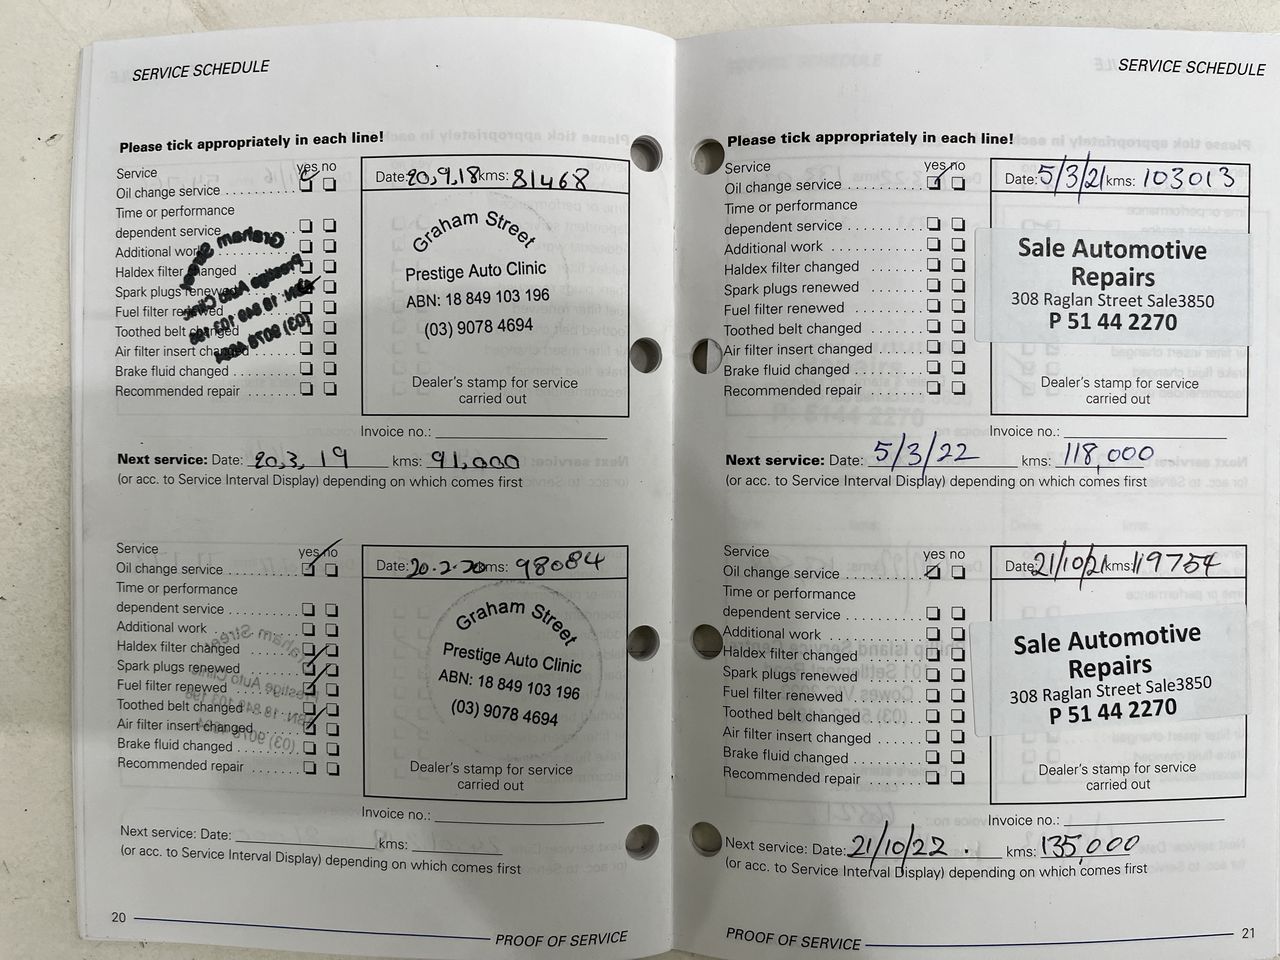 SERVICE SCHEDULE
Please tick appropriately in each line!
Service yes no
Oil change service
Time or performance
dependent service
Additional work
Haldex filter changed
Spark plugs renewed
Fuel filter renewed
Toothed belt changed
Air filter insert changed
Brake fluid changed
Recommended repair
Date: 20,9,18 kms: 81468
Graham Street
Prestige Auto Clinic
ABN: 18 849 103 196
(03) 9078 4694
Dealer's stamp for service
carried out
Invoice no.:
Next service: Date: 20,3,19 kms: 91,000
(or acc. to Service Interval Display) depending on which comes first
Service yes no
Oil change service
Time or performance
dependent service
Additional work
Haldex filter changed
Spark plugs renewed
Fuel filter renewed
Toothed belt changed
Air filter insert changed
Brake fluid changed
Recommended repair
Date: 20-2-20 kms: 98084
Graham Street
Prestige Auto Clinic
ABN: 18 849 103 196
(03) 9078 4694
Dealer's stamp for service
carried out
Invoice no.:
Next service: Date: kms:
(or acc. to Service Interval Display) depending on which comes first
20
PROOF OF SERVICE
SERVICE SCHEDULE
Please tick appropriately in each line!
Service yes no
Oil change service
Time or performance
dependent service
Additional work
Haldex filter changed
Spark plugs renewed
Fuel filter renewed
Toothed belt changed
Air filter insert changed
Brake fluid changed
Recommended repair
Date: 5/3/21 kms: 103013
Sale Automotive
Repairs
308 Raglan Street Sale3850
P 51 44 2270
Dealer's stamp for service
carried out
Invoice no.:
Next service: Date: 5/3/22 kms: 118,000
(or acc. to Service Interval Display) depending on which comes first
Service yes no
Oil change service
Time or performance
dependent service
Additional work
Haldex filter changed
Spark plugs renewed
Fuel filter renewed
Toothed belt changed
Air filter insert changed
Brake fluid changed
Recommended repair
Date: 21/10/21 kms: 119754
Sale Automotive
Repairs
308 Raglan Street Sale3850
P 51 44 2270
Dealer's stamp for service
carried out
Invoice no.:
Next service: Date: 21/10/22 . kms: 135,000
(or acc. to Service Interval Display) depending on which comes first
PROOF OF SERVICE
21